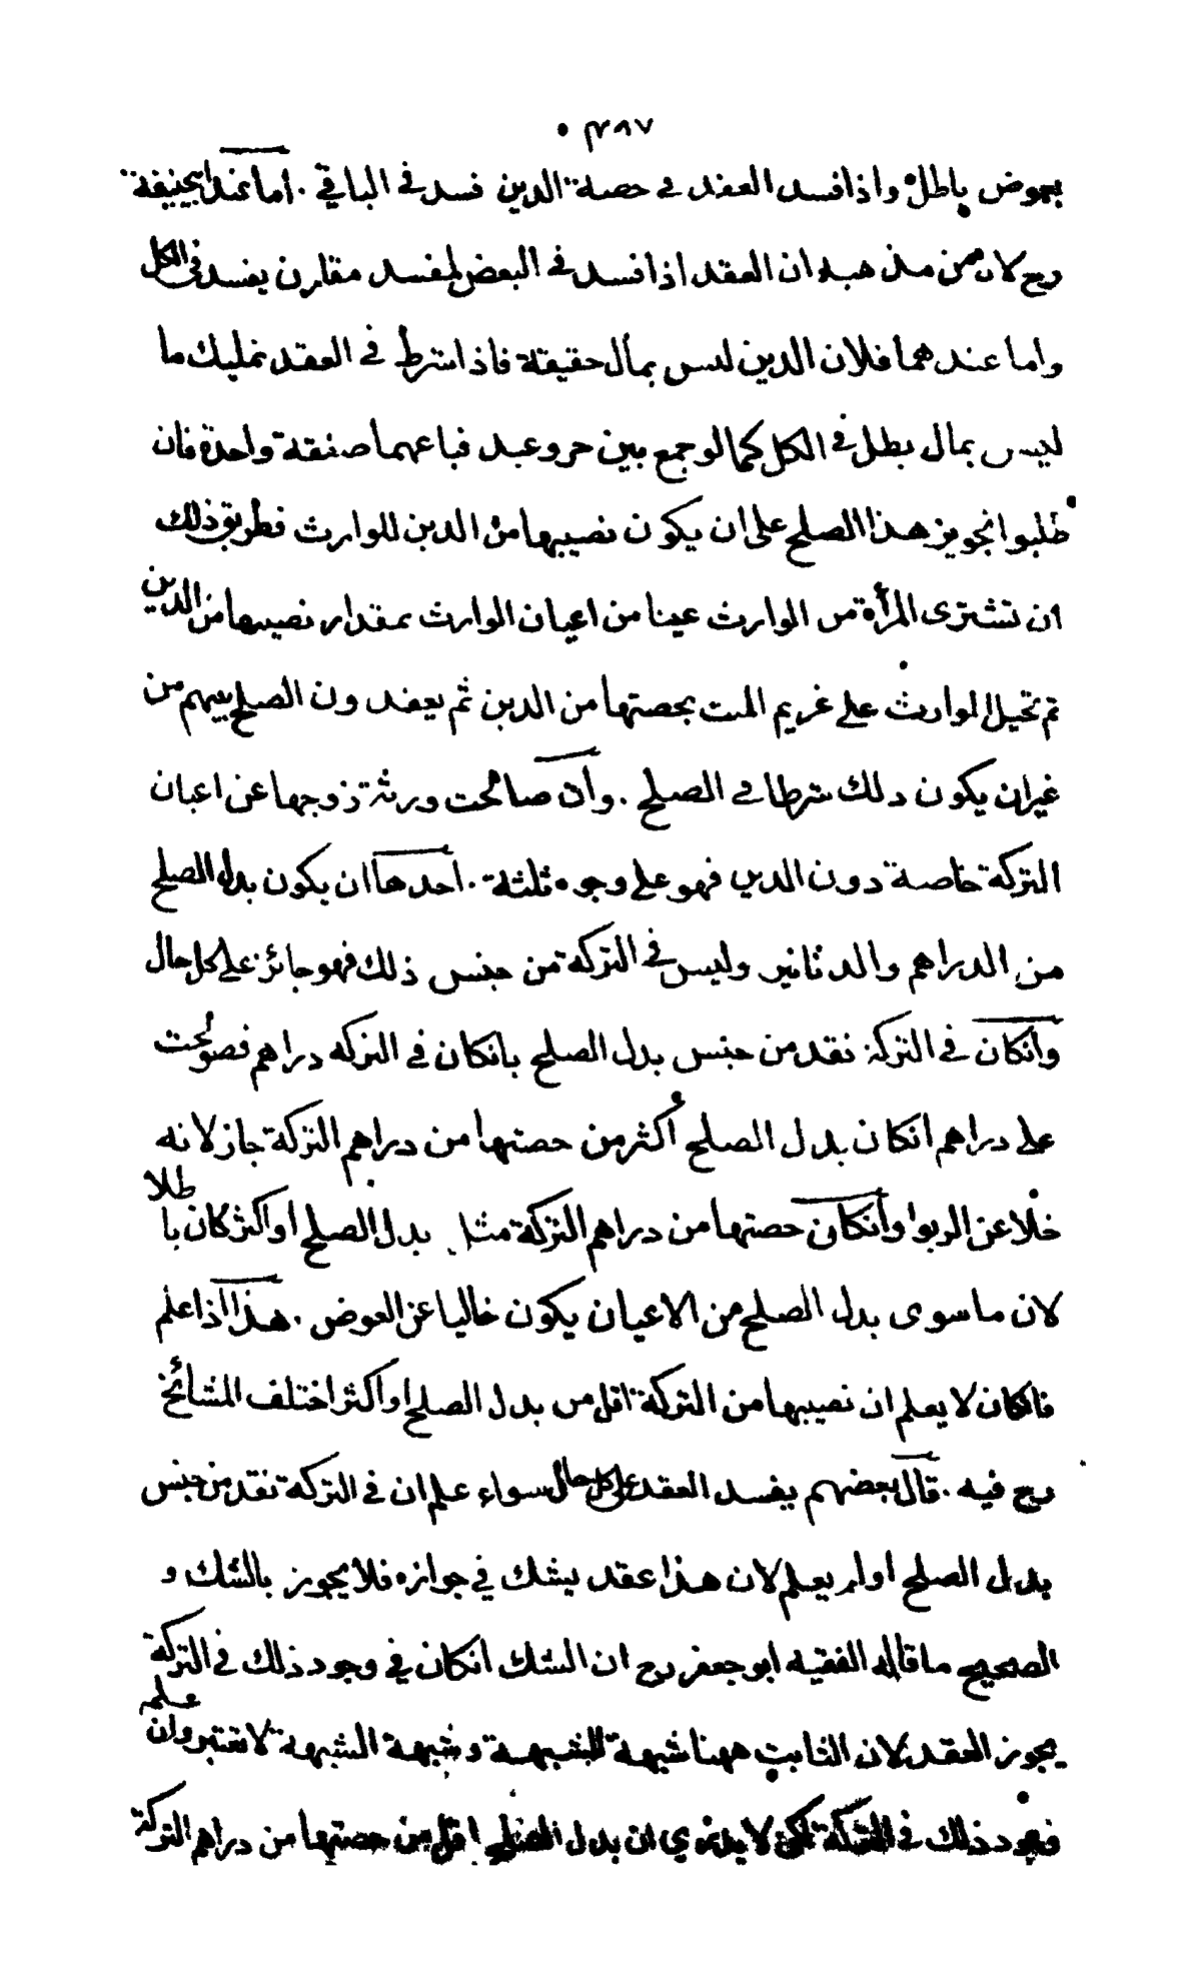 ٣٨٧ •
بعوض باطل واذا فسد العقد فى حصة الدين فسد فى الباقي . أما عند ابيحنيفة
رح لان من مذهبه ان العقد اذا فسد فى البعض لمفسد مقارن يفسد فى الكل
واما عندهما فلان الدين ليس بمال حقيقة فاذا شرط فى العقد تمليك ما
ليس بمال بطل فى الكل كما لو جمع بين حر وعبد فباعهما صفقة واحدة فان
طلبوا تجويز هذا الصلح على ان يكون نصيبها من الدين للوارث فطريق ذلك
ان تشترى المرأة من الوارث عينا من اعيان الوارث بمقدار نصيبها من الدين
ثم تحيل الوارث على غريم الميت بحصتها من الدين ثم يعقدون الصلح بينهم من
غير ان يكون ذلك شرطا فى الصلح . وان صالحت ورثة زوجها عن اعيان
التركة خاصة دون الدين فهو على وجوه ثلثة . احدها ان يكون بدل الصلح
من الدراهم والدنانير وليس فى التركة من جنس ذلك فهو جائز على كل حال
وانكان فى التركة نقد من جنس بدل الصلح بانكان فى التركه دراهم فصولحت
على دراهم انكان بدل الصلح أكثر من حصتها من دراهم التركة جاز لانه
خلا عن الربوا وانكان حصتها من دراهم التركة مثل بدل الصلح او اكثر كان باطلا
لان ما سوى بدل الصلح من الاعيان يكون خاليا عن العوض . هذا اذا علم
فانكان لا يعلم ان نصيبها من التركة اقل من بدل الصلح او اكثر اختلف المشائخ
رح فيه . قال بعضهم يفسد العقد على كل حال سواء علم ان فى التركة نقد من جنس
بدل الصلح او لم يعلم لان هذا عقد يشك في جوازه فلا يجوز بالشك و
الصحيح ما قاله الفقيه ابو جعفر رح ان الشك انكان في وجود ذلك فى التركة
يجوز العقد لان الثابت ههنا شبهة الشبهة وشبهة الشبهة لا تعتبر وان علم
وجود ذلك فى التركة لكن لا يدرى ان بدل الصلح اقل من حصتها من دراهم التركة